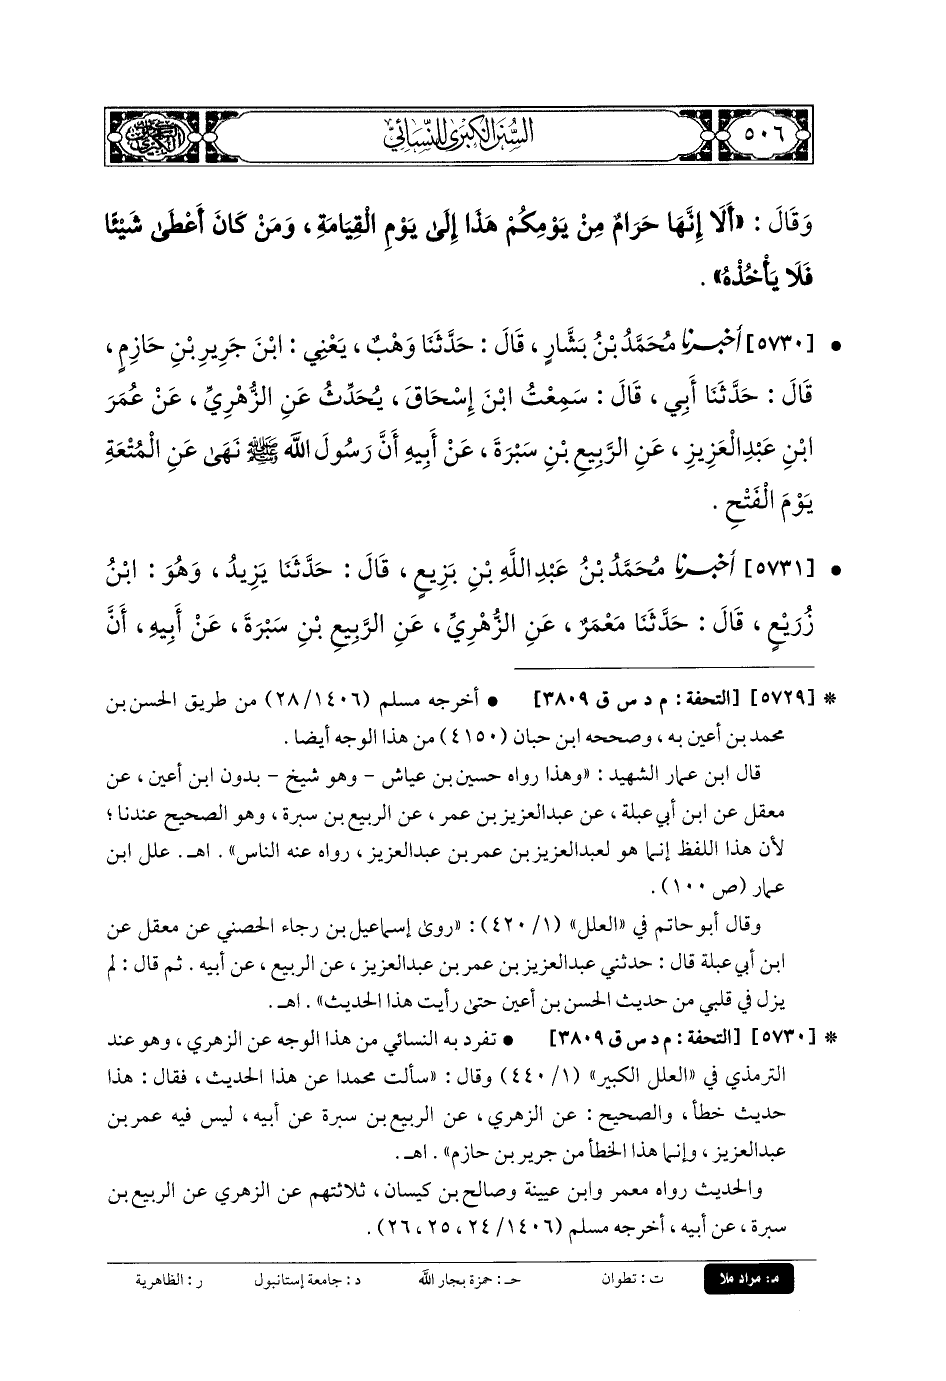 السُّنَنُ الكُبْرَىٰ لِلنَّسَائِيِّ
٥٠٦
وَقَالَ : «أَلَا إِنَّهَا حَرَامٌ مِنْ يَوْمِكُمْ هَذَا إِلَىٰ يَوْمِ الْقِيَامَةِ ، وَمَنْ كَانَ أَعْطَىٰ شَيْئًا
فَلَا يَأْخُذْهُ» .
• [٥٧٣٠] أَخْبَرَنَا مُحَمَّدُ بْنُ بَشَّارٍ ، قَالَ : حَدَّثَنَا وَهْبٌ ، يَعْنِي : ابْنَ جَرِيرِ بْنِ حَازِمٍ ،
قَالَ : حَدَّثَنَا أَبِي ، قَالَ : سَمِعْتُ ابْنَ إِسْحَاقَ ، يُحَدِّثُ عَنِ الزُّهْرِيِّ ، عَنْ عُمَرَ
ابْنِ عَبْدِالْعَزِيزِ ، عَنِ الرَّبِيعِ بْنِ سَبْرَةَ ، عَنْ أَبِيهِ أَنَّ رَسُولَ اللَّهِ ﷺ نَهَىٰ عَنِ الْمُتْعَةِ
يَوْمَ الْفَتْحِ .
• [٥٧٣١] أَخْبَرَنَا مُحَمَّدُ بْنُ عَبْدِاللَّهِ بْنِ بَزِيعٍ ، قَالَ : حَدَّثَنَا يَزِيدُ ، وَهُوَ : ابْنُ
زُرَيْعٍ ، قَالَ : حَدَّثَنَا مَعْمَرٌ ، عَنِ الزُّهْرِيِّ ، عَنِ الرَّبِيعِ بْنِ سَبْرَةَ ، عَنْ أَبِيهِ ، أَنَّ
* [٥٧٢٩] [التحفة : م د س ق ٣٨٠٩] • أخرجه مسلم (٢٨/١٤٠٦) من طريق الحسن بن
محمد بن أعين به ، وصححه ابن حبان (٤١٥٠) من هذا الوجه أيضا .
قال ابن عمار الشهيد : «وهذا رواه حسين بن عياش - وهو شيخ - بدون ابن أعين ، عن
معقل عن ابن أبي عبلة ، عن عبدالعزيز بن عمر ، عن الربيع بن سبرة ، وهو الصحيح عندنا ؛
لأن هذا اللفظ إنما هو لعبدالعزيز بن عمر بن عبدالعزيز ، رواه عنه الناس» . اهـ . علل ابن
عمار (ص ١٠٠) .
وقال أبو حاتم في «العلل» (١/ ٤٢٠) : «روىٰ إسماعيل بن رجاء الحصني عن معقل عن
ابن أبي عبلة قال : حدثني عبدالعزيز بن عمر بن عبدالعزيز ، عن الربيع ، عن أبيه . ثم قال : لم
يزل في قلبي من حديث الحسن بن أعين حتىٰ رأيت هذا الحديث» . اهـ .
* [٥٧٣٠] [التحفة : م د س ق ٣٨٠٩] • تفرد به النسائي من هذا الوجه عن الزهري ، وهو عند
الترمذي في «العلل الكبير» (١/ ٤٤٠) وقال : «سألت محمدا عن هذا الحديث ، فقال : هذا
حديث خطأ ، والصحيح : عن الزهري ، عن الربيع بن سبرة عن أبيه ، ليس فيه عمر بن
عبدالعزيز ، وإنما هذا الخطأ من جرير بن حازم» . اهـ .
والحديث رواه معمر وابن عيينة وصالح بن كيسان ، ثلاثتهم عن الزهري عن الربيع بن
سبرة ، عن أبيه ، أخرجه مسلم (١٤٠٦/ ٢٤ ، ٢٥ ، ٢٦) .
مـ: مراد ملا ت : تطوان حـ : حمزة بجار الله د : جامعة إستانبول ر : الظاهرية